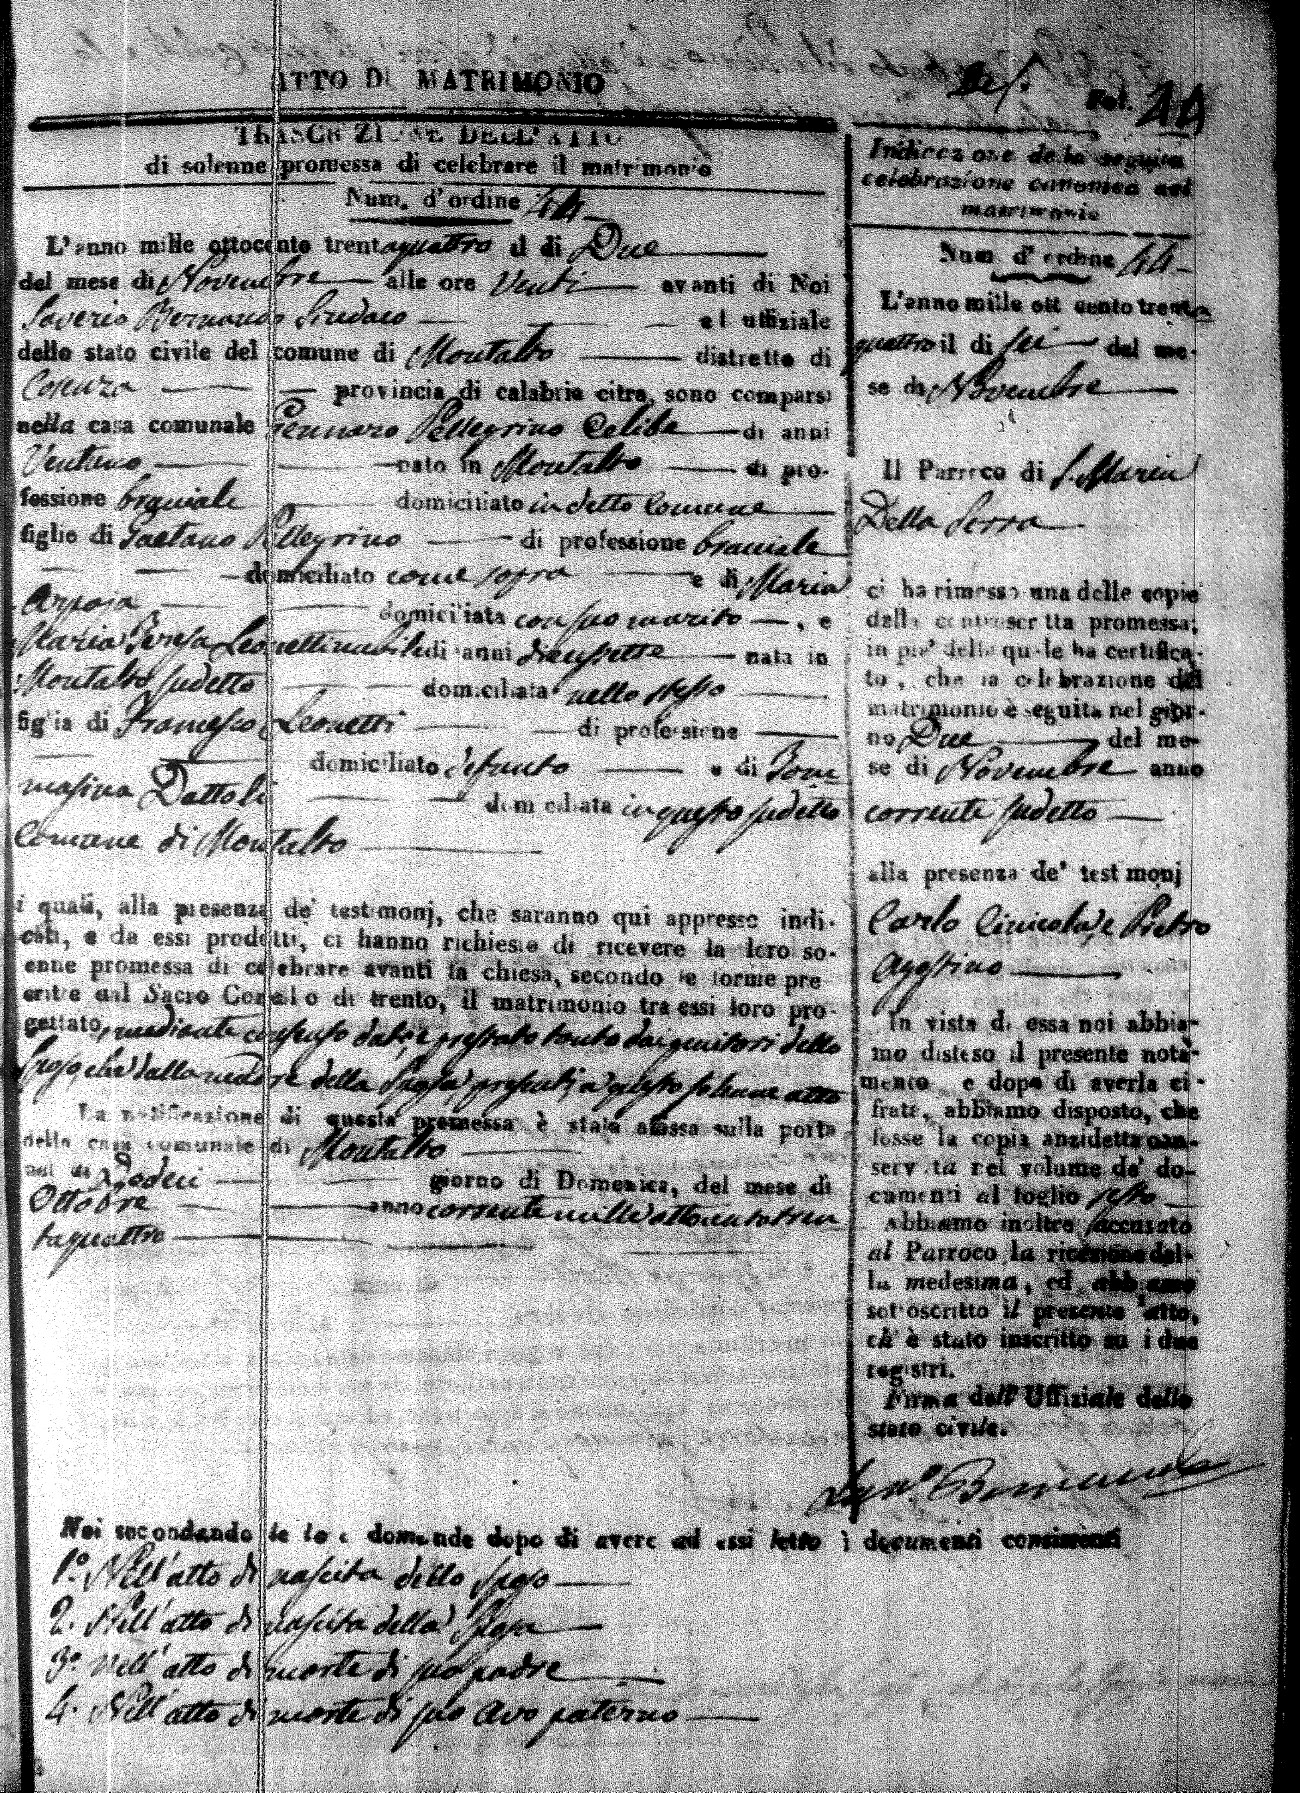 ATTO DI MATRIMONIO
Fol. 44
TRASCRIZIONE DELL' ATTO
di solenne promessa di celebrare il matrimonio
Num. d'ordine 44
L'anno mille ottocento trentaquattro il di Due
del mese di Novembre alle ore Venti avanti di Noi
Saverio Bernardo Sindaco ed uffiziale
dello stato civile del comune di Montalto distretto di
Cosenza provincia di calabria citra, sono comparsi
nella casa comunale Gennaro Pellegrino Celibe di anni
Ventuno nato in Montalto di pro-
fessione braciale domiciliato in detto Comune
figlio di Gaetano Pellegrino di professione braciale
domiciliato come sopra e di Maria
domiciliata con suo marito, e
Maria Teresa Leonetti nubile di anni diecisette nata in
Montalto sudetto domiciliata nello stesso
figlia di Francesco Leonetti di professione
domiciliato defunto e di Tom
masina Dattoli domiciliata in questo sudetto
Comune di Montalto
i quali, alla presenza de' testimonj, che saranno qui appresso indi-
cati, e da essi prodotti, ci hanno richiesto di ricevere la loro so-
enne promessa di celebrare avanti la chiesa, secondo le forme pre
critte dal Sacro Concilio di trento, il matrimonio tra essi loro pro-
gettato, mediante consenso dato, e prestato tanto dai genitori dello
Sposo, che dalla madre della Sposa, presenti a questo solenne atto
La notificazione di questa promessa è stata affissa sulla porta
della casa comunale di Montalto
nel di dodeci giorno di Domenica, del mese di
Ottobre anno corrente mille ottocentotren
taquattro
Indicazione della seguita
celebrazione canonica del
matrimonio
Num d' ordine 44
L'anno mille ott cento trenta
quattro il di sei del me-
se di Novembre
Il Parroco di S. Maria
Della Serra
ci ha rimesso una delle copie
della controscritta promessa;
in piè della quale ha certifica-
to, che la celebrazione del
matrimonio è seguita nel gior-
no Due del me-
se di Novembre anno
corrente sudetto
alla presenza de' testimonj
Carlo e Pietro
Agostino
In vista di essa noi abbia-
mo disteso il presente nota-
mento e dopo di averla ci-
frata, abbiamo disposto, che
fosse la copia anzidetta con-
servata nel volume de' do-
cumenti al foglio sesto
Abbiamo inoltre accusato
al Parroco la ricezione del-
la medesima, ed abbiamo
sottoscritto il presente atto,
ch' è stato inscritto su i due
registri.
Firma dell' Uffiziale dello
stato civile.
Bernardo
Noi secondando le loro domande dopo di avere ad essi letto i documenti consistenti
1.° Nell'atto di nascita dello Sposo
2. Nell'atto di nascita della Sposa
3.° Nell'atto di morte di suo padre
4. Nell'atto di morte di suo avo paterno